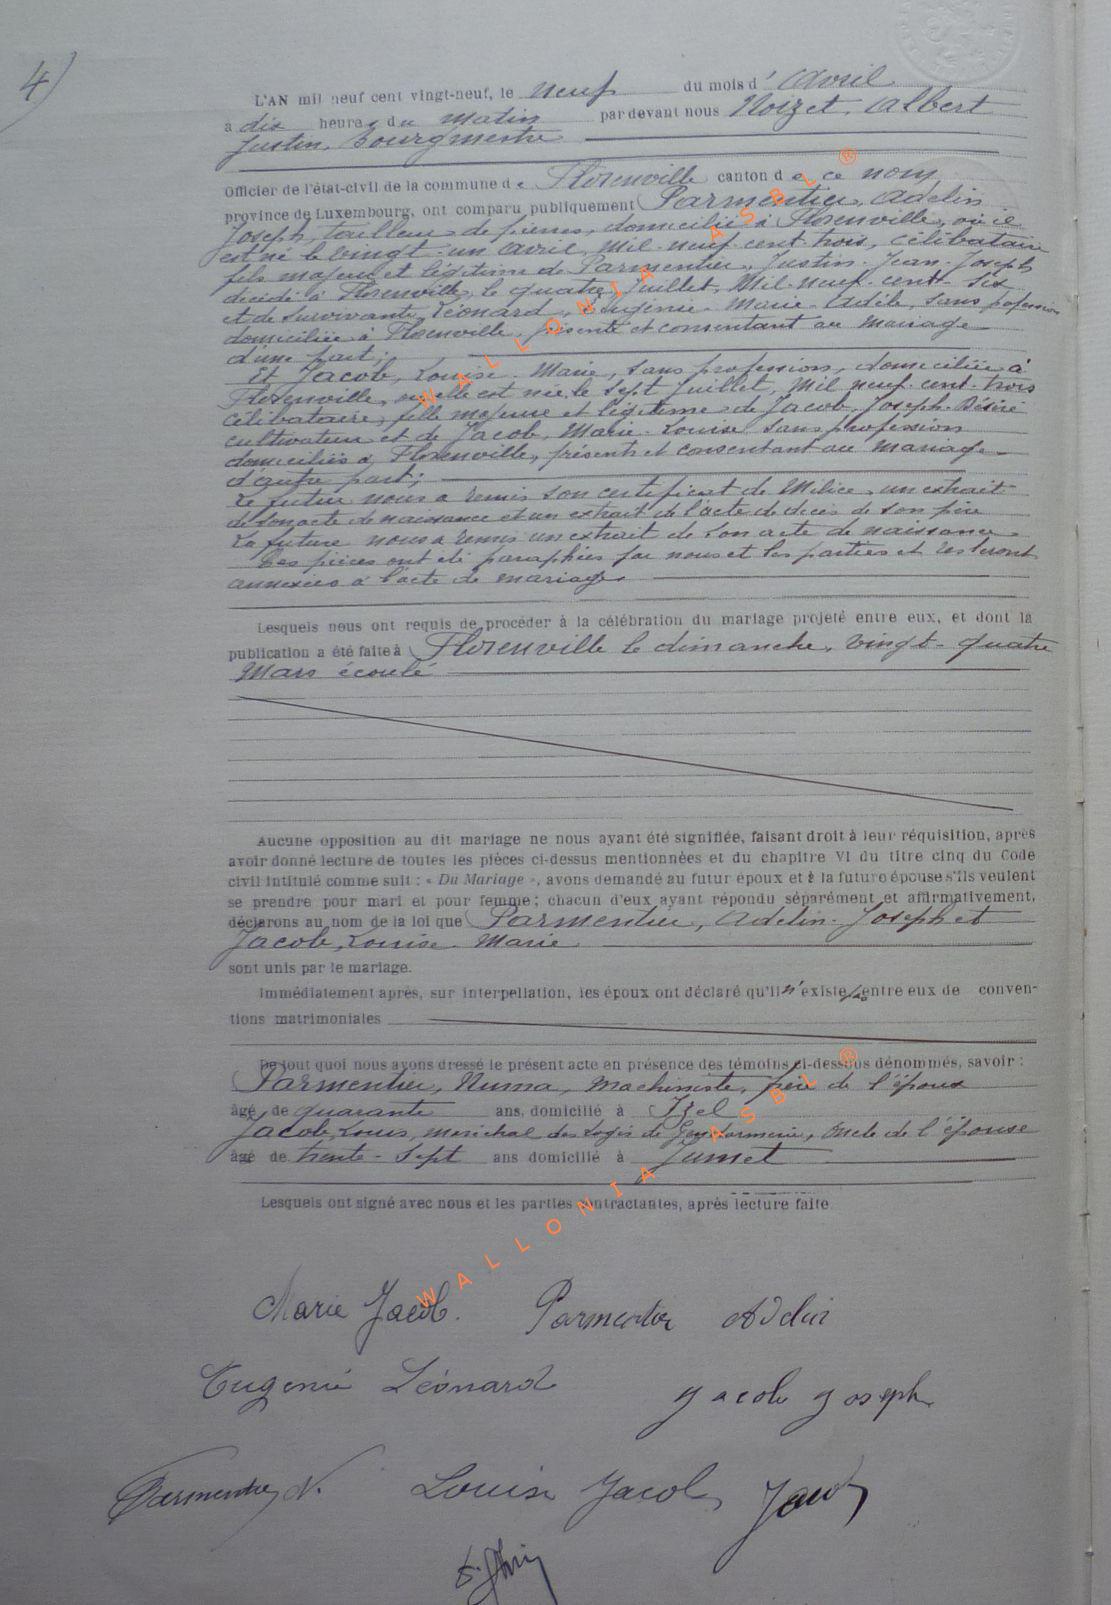 4)
L'AN mil neuf cent vingt-neuf, le neuf du mois d' Avril
à dix heures du matin par devant nous Noizet, Albert
Justin, Bourgmestre
Officier de l'état-civil de la commune de Florenville canton de ce nom,
province de Luxembourg, ont comparu publiquement Parmentier, Adelin
Joseph, tailleur de pierres, domicilié à Florenville, où il
est né le vingt-un avril, mil-neuf-cent-trois, célibataire
fils majeur et légitime de Parmentier, Justin-Jean-Joseph
décédé à Florenville, le quatre Juillet, Mil-neuf-cent-six
et de survivante Léonard, Eugénie-Marie-Adèle, sans profession
domiciliée à Florenville, présente et consentant au mariage
d'une part;
Et Jacob, Louise-Marie, sans profession, domiciliée à
Florenville, où elle est née, le sept Juillet, Mil neuf-cent-trois
célibataire, fille majeure et légitime de Jacob, Joseph-Désiré
cultivateur et de Jacob, Marie-Louise sans profession
domiciliés à Florenville, présents et consentant au mariage
d'autre part;
Le futur nous a remis son certificat de Milice, un extrait
de son acte de naissance et un extrait de l'acte de décès de son père
La future nous a remis un extrait de son acte de naissance
Ces pièces ont été paraphées par nous et les parties et resteront
annexées à l'acte de mariage.
Lesquels nous ont requis de procéder à la célébration du mariage projeté entre eux, et dont la
publication a été faite à Florenville le dimanche, vingt-quatre
Mars écoulé
Aucune opposition au dit mariage ne nous ayant été signifiée, faisant droit à leur réquisition, après
avoir donné lecture de toutes les pièces ci-dessus mentionnées et du chapitre VI du titre cinq du Code
civil intitulé comme suit : « Du Mariage », avons demandé au futur époux et à la future épouse s'ils veulent
se prendre pour mari et pour femme ; chacun d'eux ayant répondu séparément et affirmativement,
déclarons au nom de la loi que Parmentier, Adelin-Joseph et
Jacob, Louise-Marie
sont unis par le mariage.
Immédiatement après, sur interpellation, les époux ont déclaré qu'il n'existe pas entre eux de conven-
tions matrimoniales
De tout quoi nous avons dressé le présent acte en présence des témoins ci-dessous dénommés, savoir :
Parmentier, Numa, machiniste, frère de l'époux
âgé de quarante ans, domicilié à Izel
Jacob, Louis, maréchal des logis de Gendarmerie, oncle de l'épouse
âgé de trente-sept ans domicilié à Jumet
Lesquels ont signé avec nous et les parties contractantes, après lecture faite
Marie Jacob. Parmentier Adelin
Eugénie Léonard Jacob Joseph
Parmentier N. Louise Jacob Jacob
WALLONIA ASBL ®
WALLONIA ASBL ®